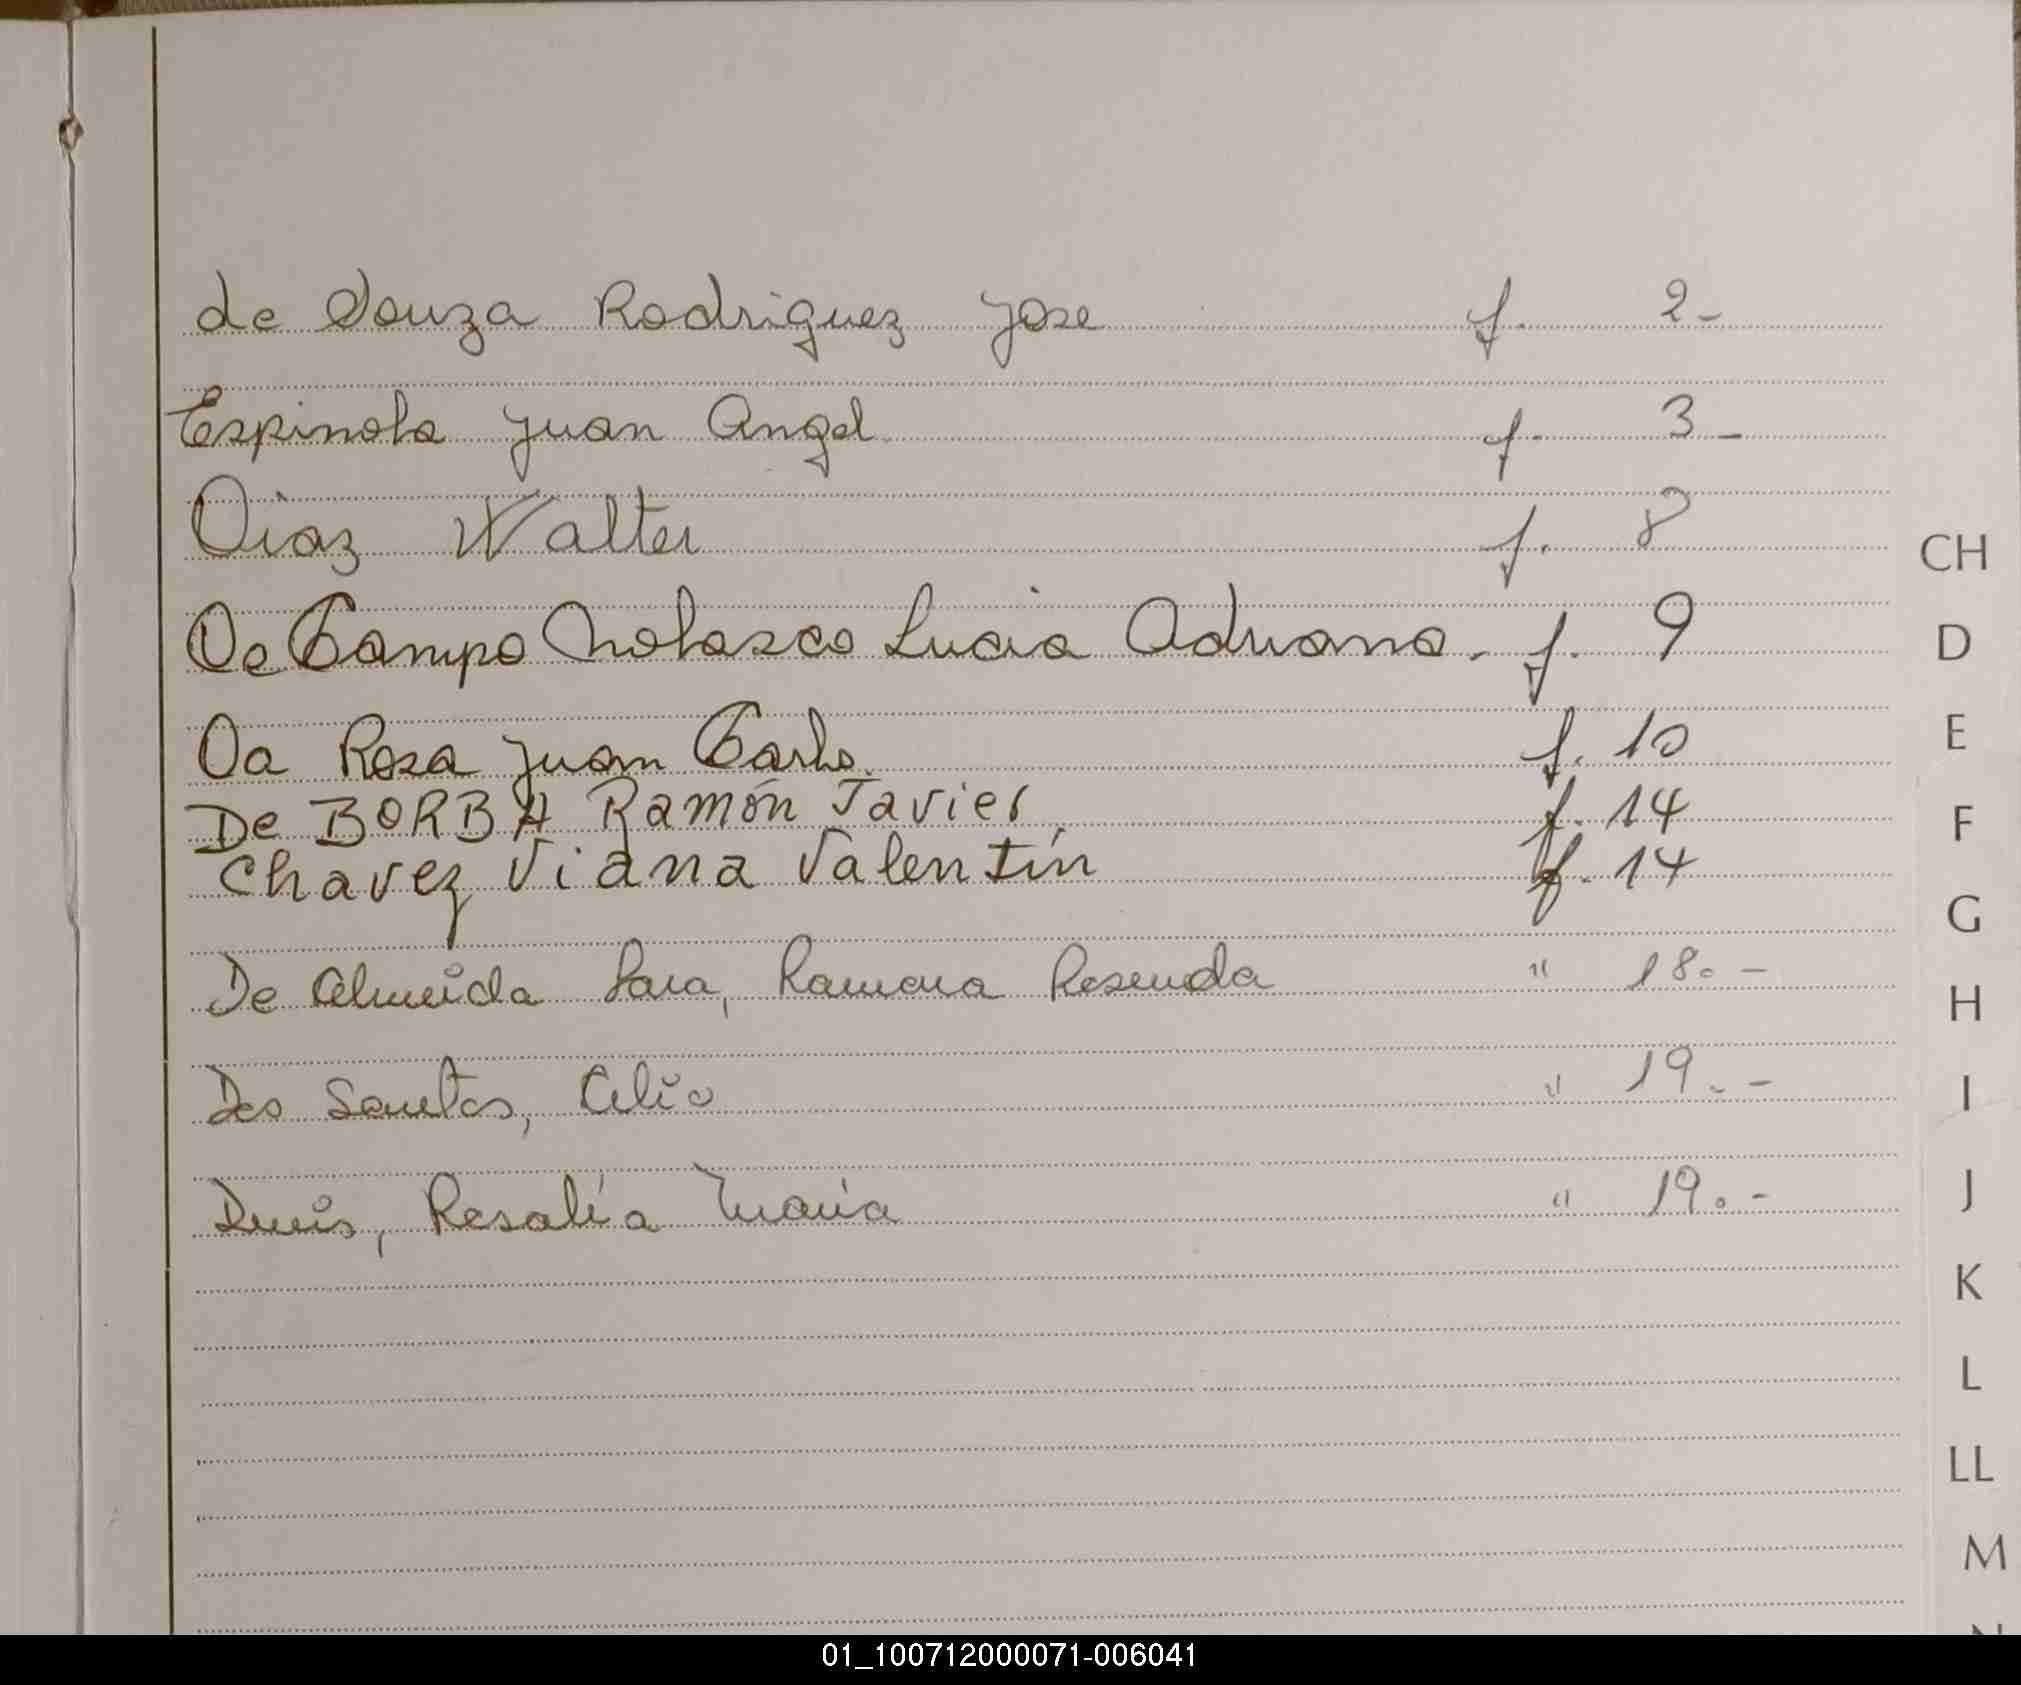 de Souza Rodriguez Jose f. 2-
Espinola Juan Angel f. 3-
Diaz Walter f. 8
De Campo Nolasco Lucia Adriana - f. 9
Da Rosa Juan Carlo. f. 10
De BORBA Ramón Javier f. 14
Chavez Viana Valentín f. 14
De Almeida Sara, Ramona Rosenda " 18.-
Dos Santos, Celio " 19.-
Denis, Rosalía María " 19.-
CH
D
E
F
G
H
I
J
K
L
LL
M
01_100712000071-006041